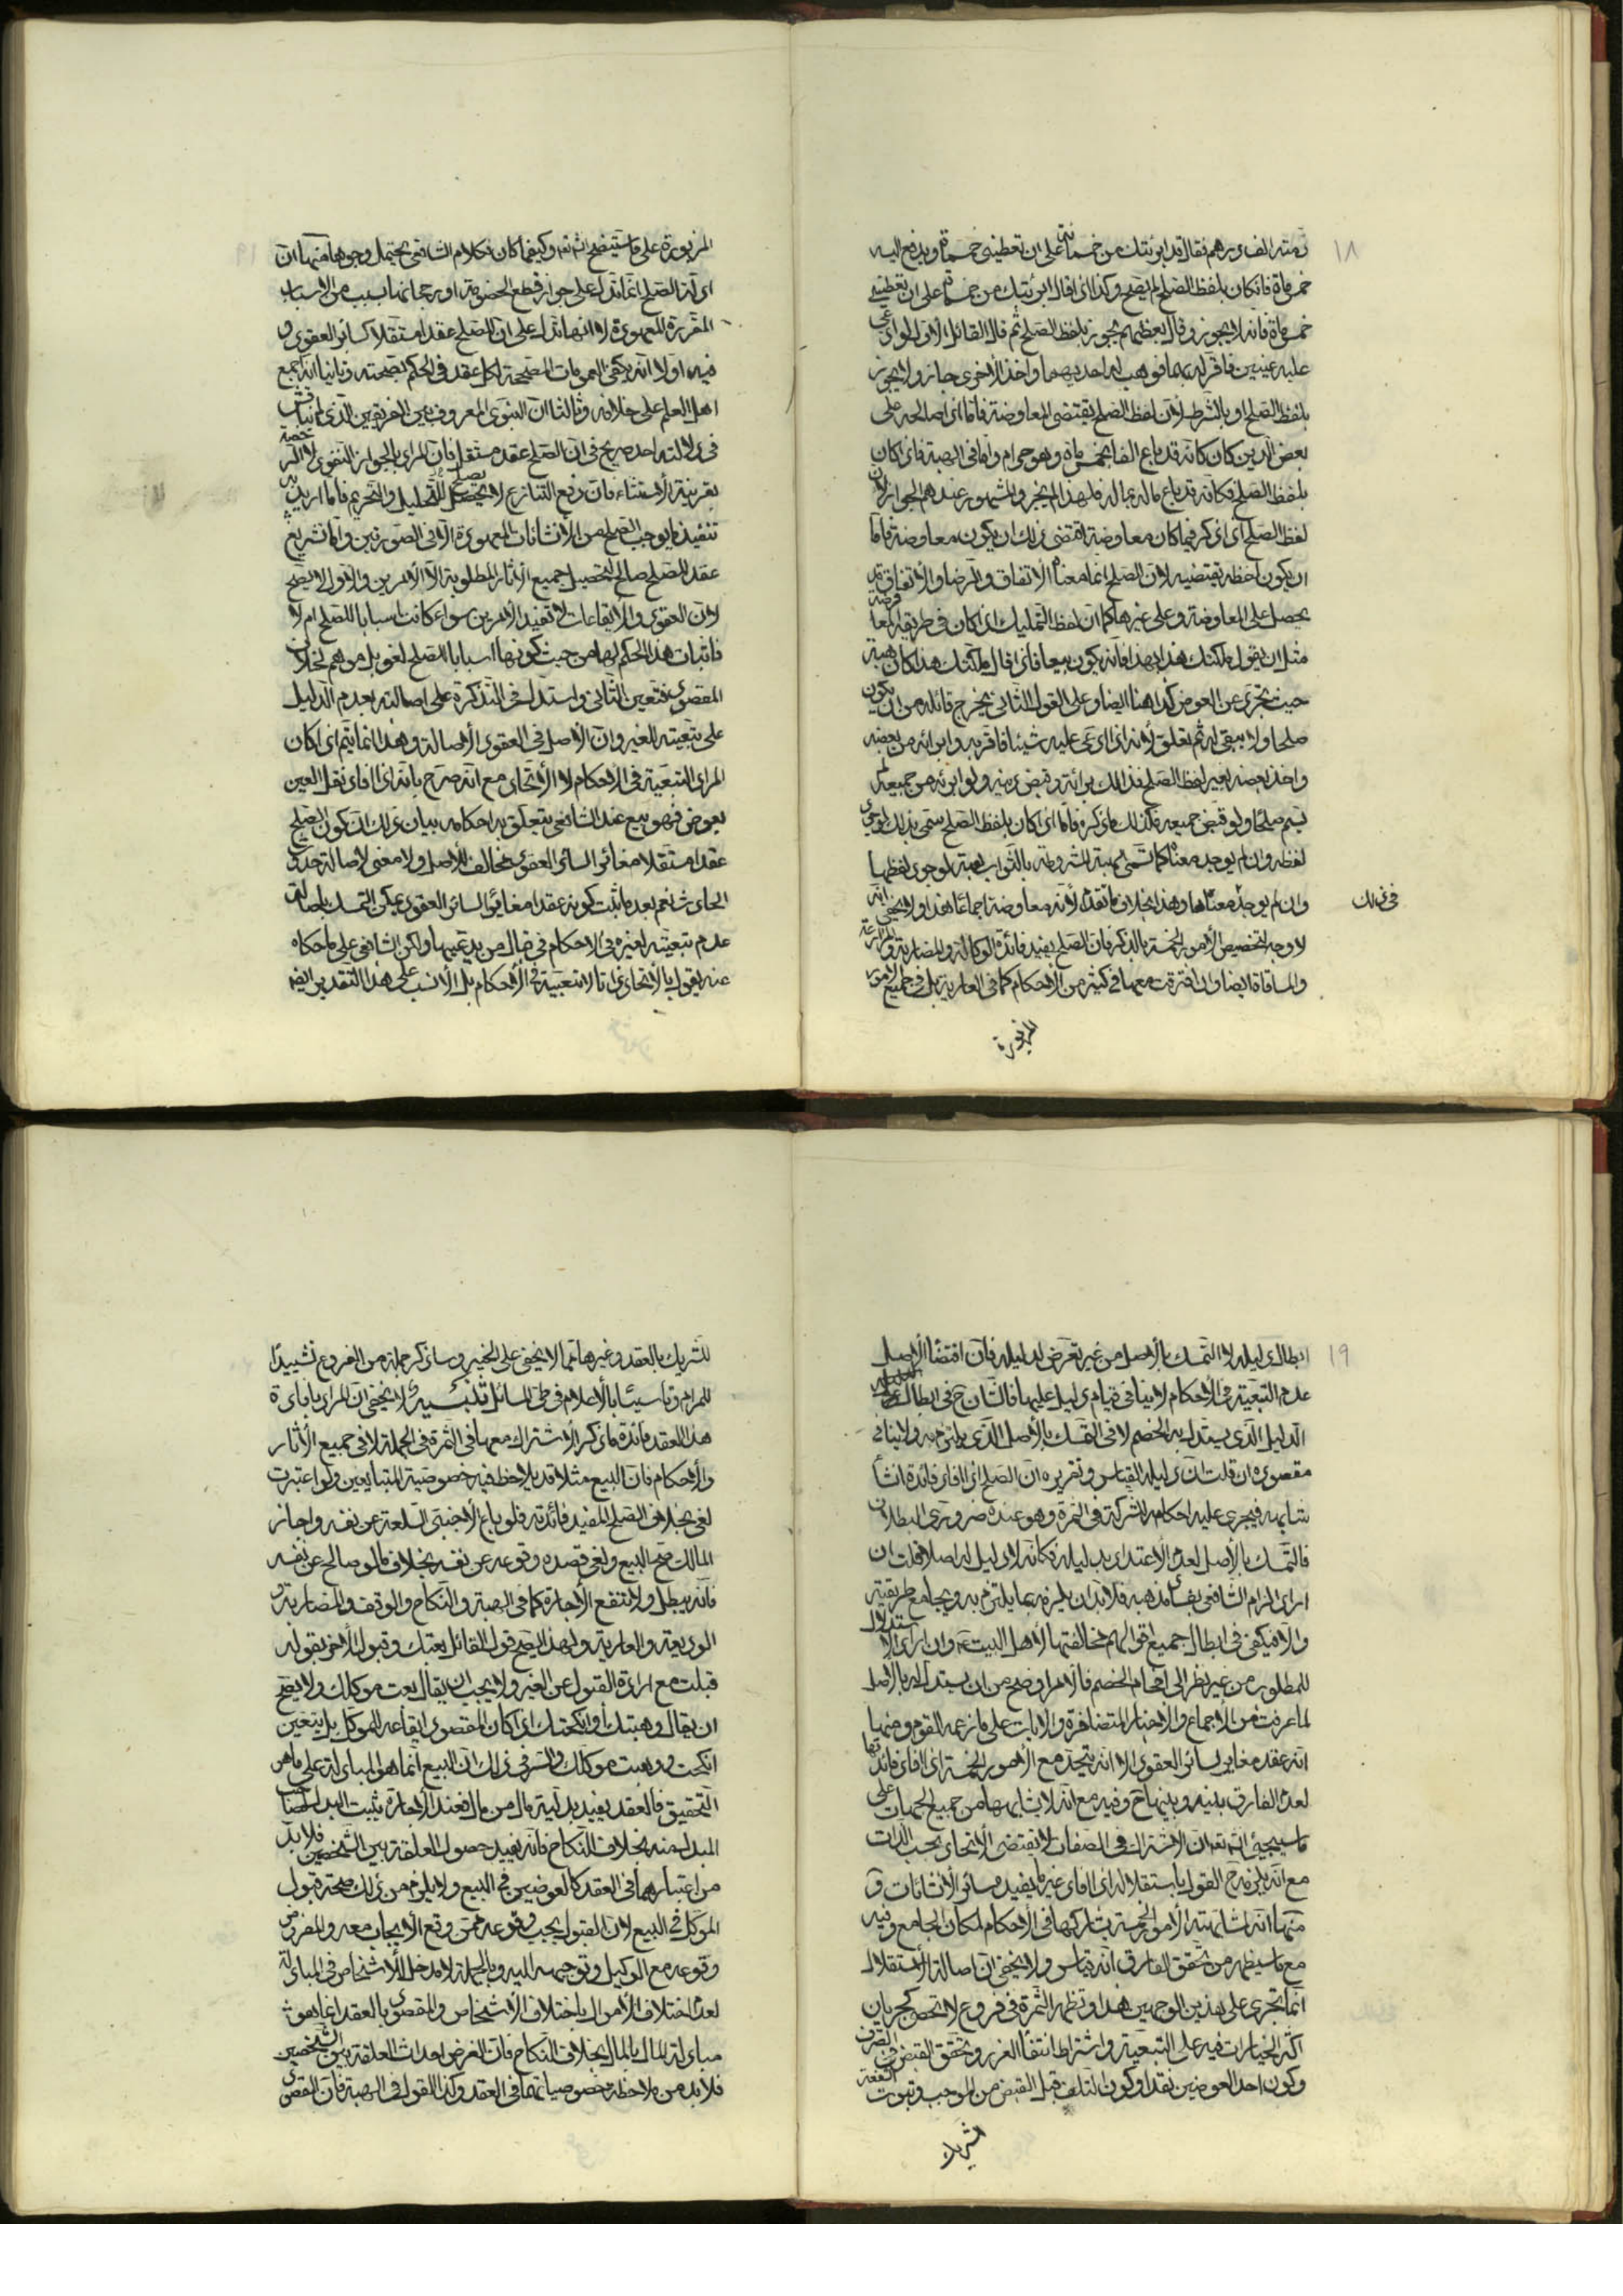 ١٨
ذمته الف درهم فقال قد ابرئتك من خمسمائة على ان تعطيني خمسمائة ويدفع اليه
خمسمائة فان كان بلفظ الصلح لم يصح وكذا اذا قال ابرئتك من خمسمائة على ان تعطيني
خمسمائة فانه لا يجوز وقال بعضهم يجوز بلفظ الصلح ثم قال القائل الاول لو ادعى
عليه عينين فاقر له بهما فوهب له احديهما واخذ الاخرى جاز ولا يجوز
بلفظ الصلح او بالشرط لان لفظ الصلح يقتضي المعاوضة فاما اذا صالحه على
بعض الدين كان كانه قد باع الفا بخمسمائة وهو حرام واما في الهبة فاذا كان
بلفظ الصلح فكانه قد باع ماله بماله فلهذا لم يجز والمشهور عندهم الجواز لان
لفظ الصلح اذا ذكر فيما كان معاوضة اقتضى ذلك ان يكون معاوضة فاما
ان يكون لفظه يقتضيه لان الصلح انما معناه الاتفاق والرضا والاتفاق قد
يحصل على المعاوضة وعلى غيرها كما ان لفظ التمليك اذا كان في طريقه المعاوضة
مثل ان يقول ملكتك هذا بهذا فانه يكون بيعا فاذا قال ملكتك هذا كان هبة
حيث تجرى عن العوض كذا هنا ايضا وعلى القول الثاني يخرج قائله من ان يكون
صلحا ولا يبقى له ثم تعلق لانه اذا ادعى عليه شيئا فاقر به وابرائه من بعضه
واخذ بعضه بغير لفظ الصلح فذالك برائة وقبض دينه ولو ابرئه من جميعه لم
يسم صلحا ولو قبض جميعه فكذلك ما ذكره فاما اذا كان بلفظ الصلح سمى بذلك لوجود
لفظه وان لم يوجد معناه كما تسمى الهبة المشروطة بالثواب هبة لوجود لفظها
وان لم يوجد معناها وهذا بخلاف ما تقدم لانه معاوضة اجماعا هذا ولا يخفى انه
في ذلك
لا وجه لتخصيص الامور الخمسة بالذكر فان الصلح يفيد فائدة الوكالة والمضاربة والمزارعة
والمساقاة ايضا وان افترقت معها في كثير من الاحكام كما في العارية بل في جميع الامور
المزبورة
المزبورة على ما ستتضح انشاء الله وكيفما كان فكلام الشافعي يحتمل وجوها منها ان
ادلة الصلح انما تدل على جواز قطع الخصومة او رجحانها بسبب من الاسباب
المقررة المعهودة لا انها تدل على ان الصلح عقد مستقلا كسائر العقود و
فيه اولا انه يكفى العمومات المصححة لكل عقد في الحكم بصحته وثانيا انه اجمع
اهل العلم على خلافه وثالثا ان النبوى المعروف بين الفريقين الذى لم يناقش
في دلالته احد صريح في ان الصلح عقد مستقل فان المراد بالجواز النفوذ لا الرخصة
بقرينة الاستثناء فان رفع التنازع لا يصلح للتحليل والتحريم فاما اريد به
تنفيذ ما يوجب الصلح من الانشائات المعهودة الا في الصورتين واما تشريع
عقد للصلح صالح لتحصيل جميع الاثار المطلوبة الا الامرين والاول لا يصح
لان العقود والايقاعات لا تفيد الامرين سواء كانت اسبابا للصلح ام لا
فاثبات هذا الحكم لها من حيث كونها اسبابا للصلح لغو بل موهم لخلاف
المقصود فتعين الثانى واستدل في التذكرة على اصالته بعدم الدليل
على تبعيته للغير وان الاصل في العقود الاصالة وهذا انما يتم اذا كان
المراد التبعية في الاحكام لا الاتحاد مع انه صرح بانه اذا افاد نقل العين
بعوض فهو بيع عند الشافعي يتعلق به احكامه بيان ذلك ان كون الصلح
عقدا مستقلا مغائرا لسائر العقود مخالف للاصل ولا معنى لاصالة حدوث
الحادث نعم بعد ما ثبت كونه عقدا مغائرا لسائر العقود يمكن التمسك باصالة
عدم تبعيته لغيره في الاحكام في قبال من يدعيها ولكن الشافعي على ما حكاه
عنه يقول بالاتحاد ذاتا لا تبعية في الاحكام بل الانسب على هذا التقدير ايضا
١٩
ابطال دليله لا التمسك بالاصل من غير تعرض لدليله فان اقتضاء الاصل
عدم التبعية في الاحكام لا ينافي قيام دليل عليها فالشان ح في ابطال
الدليل الذى يستدل به الخصم لا في التمسك بالاصل الذى يلتزم به ولا ينافي
مقصوده ان قلت ان دليله القياس وتقريره ان الصلح اذا افاد فائدة انشاء
شابهه فيجرى عليه احكامه للشركة في الثمرة وهو عنده ضرورى البطلان
فالتمسك بالاصل لعدم الاعتداد بدليله فكانه لا دليل له اصلا قلت ان
اراد الزام الشافعي بفساد مذهبه فلا بد ان يلزمه بما يلتزم به ويجامع طريقته
والا فيكفى في ابطال جميع اقوالهم مخالفتها لاهل البيت ع وان اراد الاستدلال
للمطلوب من غير نظر الى افحام الخصم فالامر اوضح من ان يستدل له بالاصل
لما عرفت من الاجماع والاخبار المتضافرة والايات على ما زعمه القوم ومنها
انه عقد مغاير لسائر العقود الا انه يتحد مع الامور الخمسة اذا افاد فائدتها
لعدم الفارق بينه وبينها ح وفيه مع انه لا يشابهها من جميع الجهات على
ما سيجيء انشاء الله تعالى ان الاشتراك في الصفات لا يقتضى الاتحاد بحسب الذات
مع انه يلزمه ح القول باستقلاله اذا افاد غير ما يفيده سائر الانشائات و
منها انه لمشابهته الامور الخمسة يشاركها في الاحكام لمكان الجامع وفيه
مع ما سيظهر من تحقق الفارق انه قياس ولا يخفى ان اصالة الاستقلال
انما تجرى على هذين الوجهين هذا وتظهر الثمرة في فروع لا تحصى كجريان
اكثر الخيارات فيه على التبعية واشتراط انتفاء الغرر وتحقق القبض في الصرف
وكون احد العوضين نقدا وكون التلف قبل القبض من الموجب وثبوت الشفعة
للشريك
للشريك بالعقد وغيرها مما لا يخفى على الخبير وساذكر جملة من الفروع تشييدا
للمرام وتاسيا بالاعلام في طى المسائل تنبيه لا يخفى ان المراد بافادة
هذا العقد فائدة ما ذكر الاشتراك معها في الثمرة في الجملة لا في جميع الاثار
والاحكام فان البيع مثلا قد يلاحظ فيه خصوصية المتبايعين ولو اعتبرت
لغى بخلاف الصلح المفيد فائدته فلو باع الاجنبى السلعة عن نفسه واجاز
المالك صح البيع ولغى قصده وقوعه عن نفسه بخلاف ما لو صالح عن نفسه
فانه يبطل ولا تنفع الاجازة كما في الهبة والنكاح والوقف والمضاربة و
الوديعة والعارية ولهذا يصح قول القائل بعتك وقبول الاخر بقوله
قبلت مع ارادة القبول عن الغير ولا يجب ان يقال بعت موكلك ولا يصح
ان يقال وهبتك او انكحتك اذا كان المقصود ايقاعه للموكل بل يتعين
انكحت ووهبت موكلك والسر في ذلك ان البيع انما هو المبادلة على ما هو
التحقيق فالعقد يفيد بدلية مال من مال فعند الاجازة يثبت البدل لصاحب
المبدل منه بخلاف النكاح فانه يفيد حصول العلقة بين الشخصين فلا بد
من اعتبارهما في العقد كالعوضين في البيع ولا يلزم من ذلك صحة قبول
الموكل في البيع لان القبول يجب وقوعه ممن وقع الايجاب معه والمفروض
وقوعه مع الوكيل وتوجيهه اليه وبالجملة لا مدخل للاشخاص في المبادلة
لعدم اختلاف الاموال باختلاف الاشخاص والمقصود بالعقد انما هو
مبادلة المال بالمال بخلاف النكاح فان الغرض احداث العلقة بين الشخصين
فلا بد من ملاحظة خصوصياتهما في العقد وكذا القول في الهبة فان المقصود